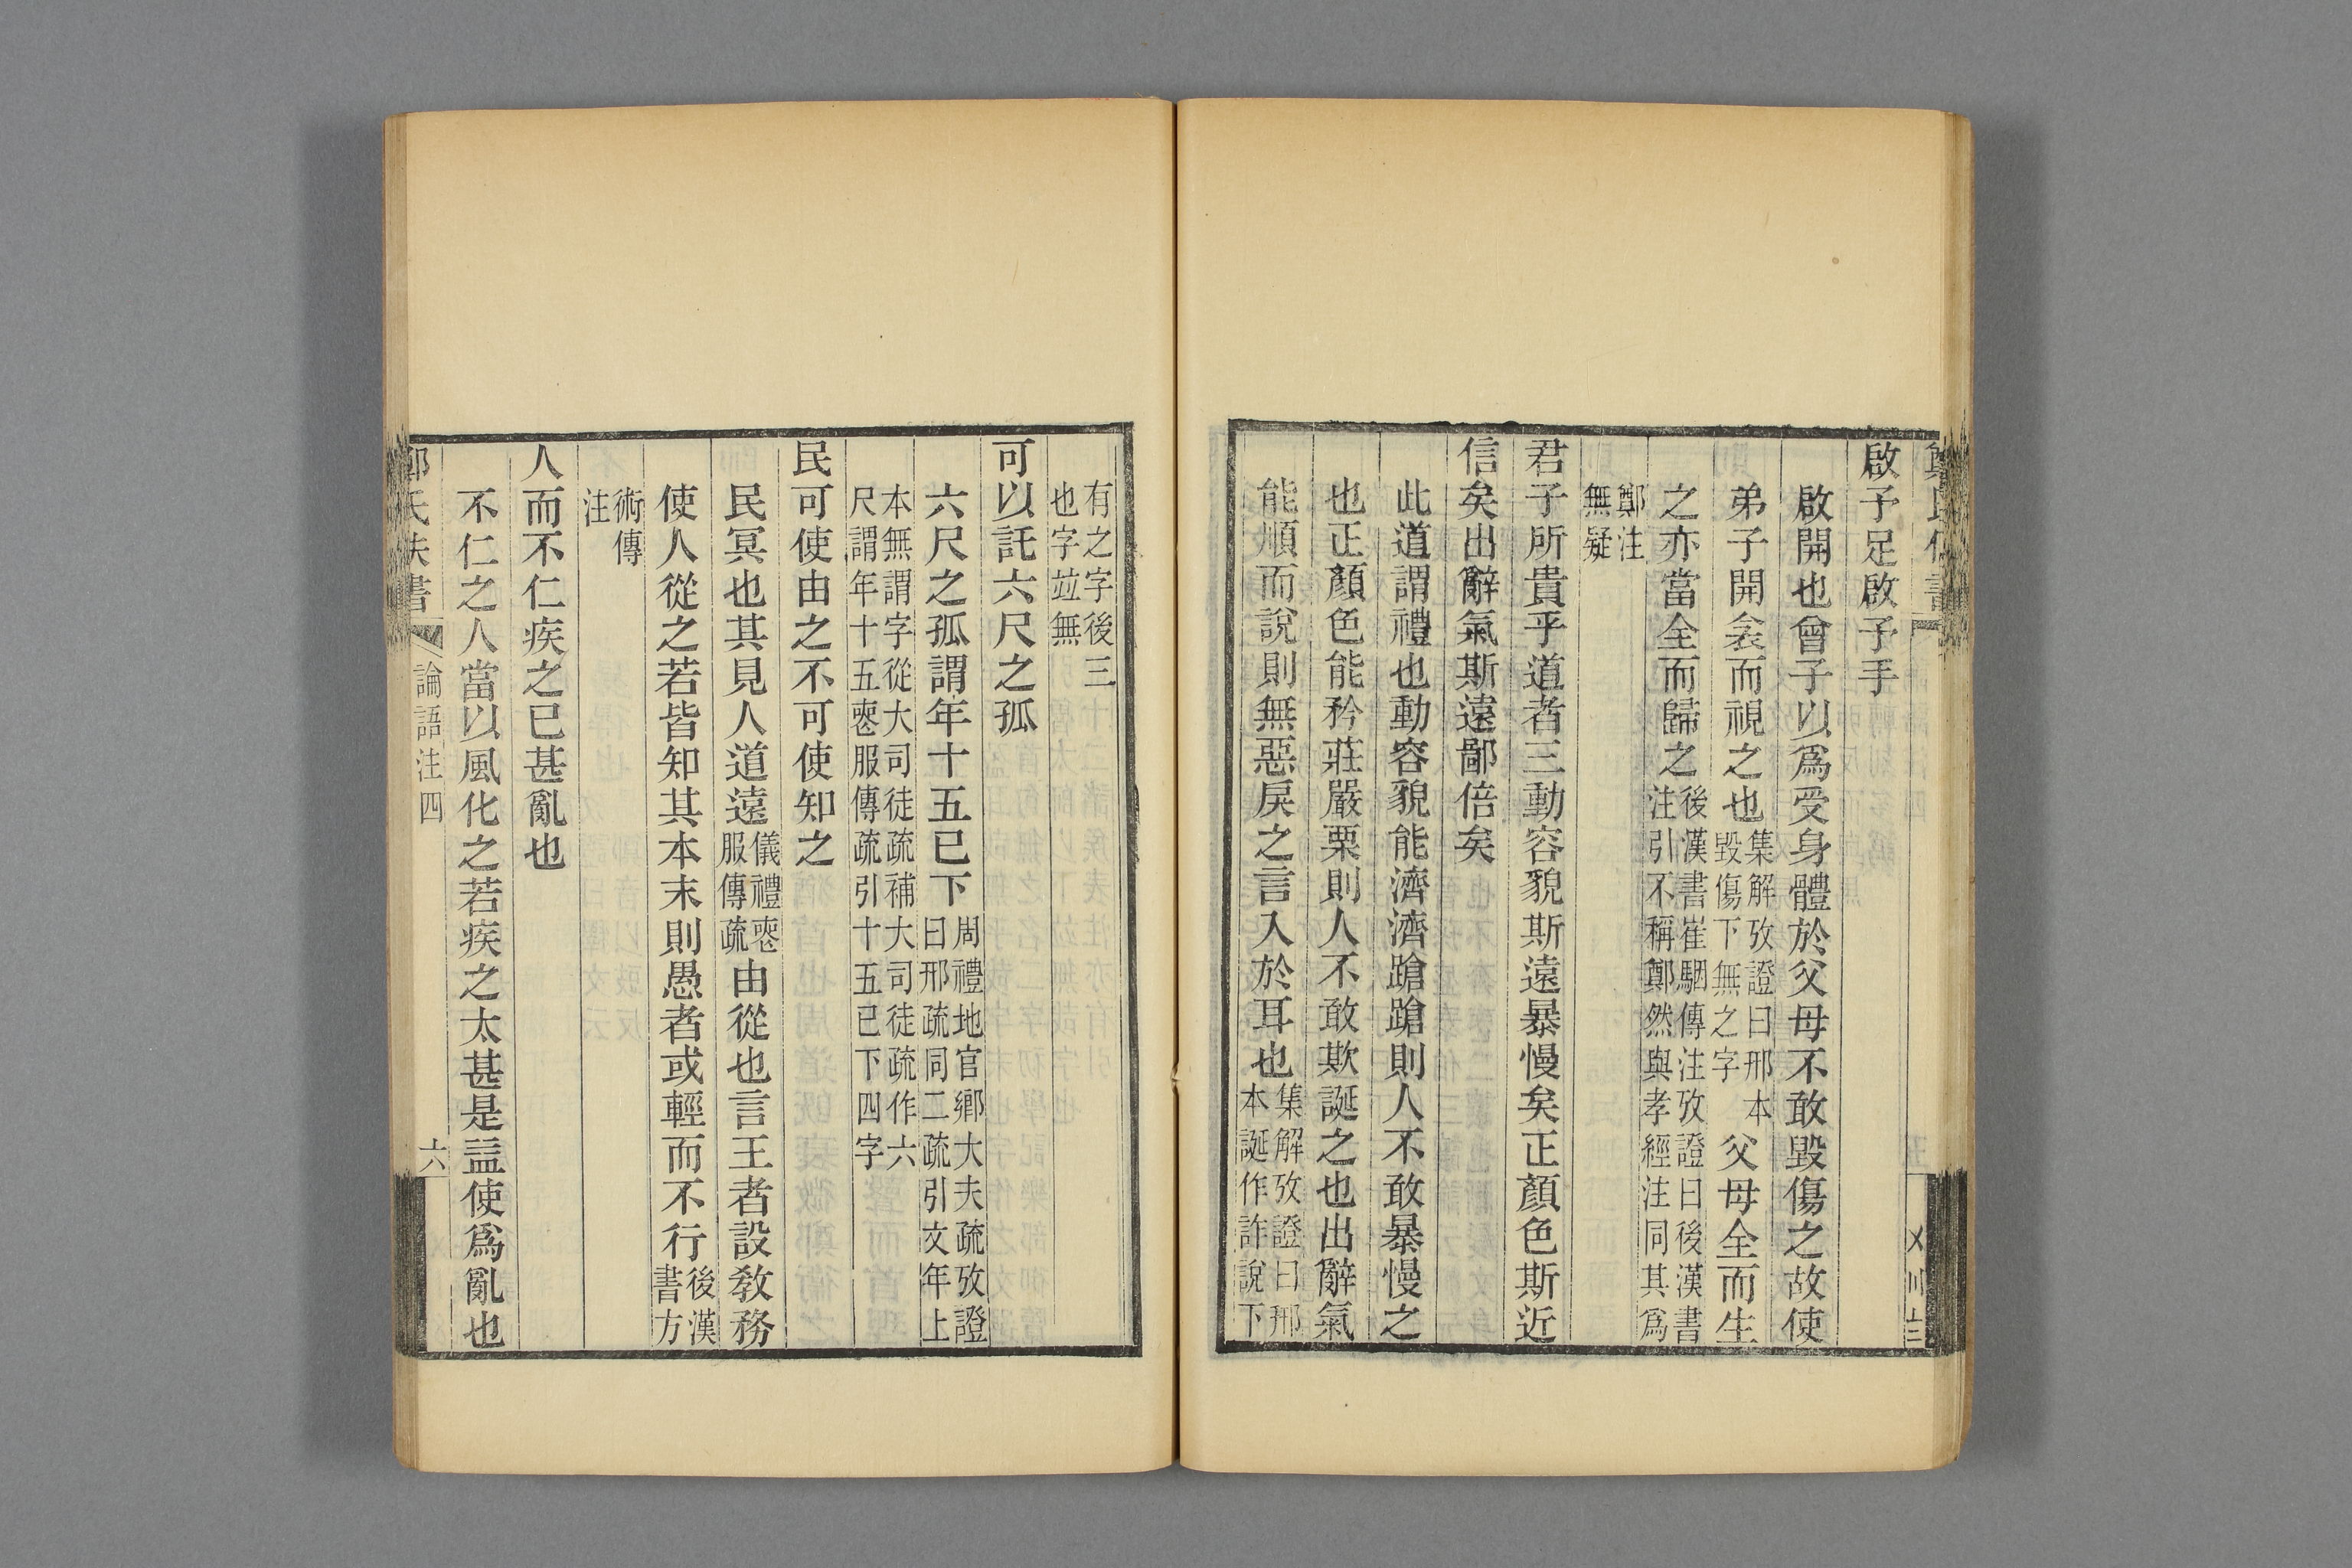 啟予足啟予手
啟開也曾子以爲受身體於父母不敢毀傷之故使
弟子開衾而視之也集解攷證曰邢本毀傷下無之字父母全而生
之亦當全而歸之後漢書崔駰傳注攷證曰後漢書注引不稱鄭然與孝經注同其爲
鄭注無疑
君子所貴乎道者三動容貌斯遠暴慢矣正顏色斯近
信矣出辭氣斯遠鄙倍矣
此道謂禮也動容貌能濟濟蹌蹌則人不敢暴慢之
也正顏色能矜莊嚴栗則人不敢欺誕之也出辭氣
能順而說則無惡戾之言入於耳也集解攷證曰邢本誕作詐說下
有之字後三也字竝無
可以託六尺之孤
六尺之孤謂年十五已下周禮地官鄉大夫疏攷證曰邢疏同二疏引文年上
本無謂字從大司徒疏補大司徒疏作六尺謂年十五喪服傳疏引十五已下四字
民可使由之不可使知之
民冥也其見人道遠儀禮喪服傳疏由從也言王者設敎務
使人從之若皆知其本末則愚者或輕而不行後漢書方
術傳注
人而不仁疾之已甚亂也
不仁之人當以風化之若疾之太甚是益使爲亂也
論語注四
六